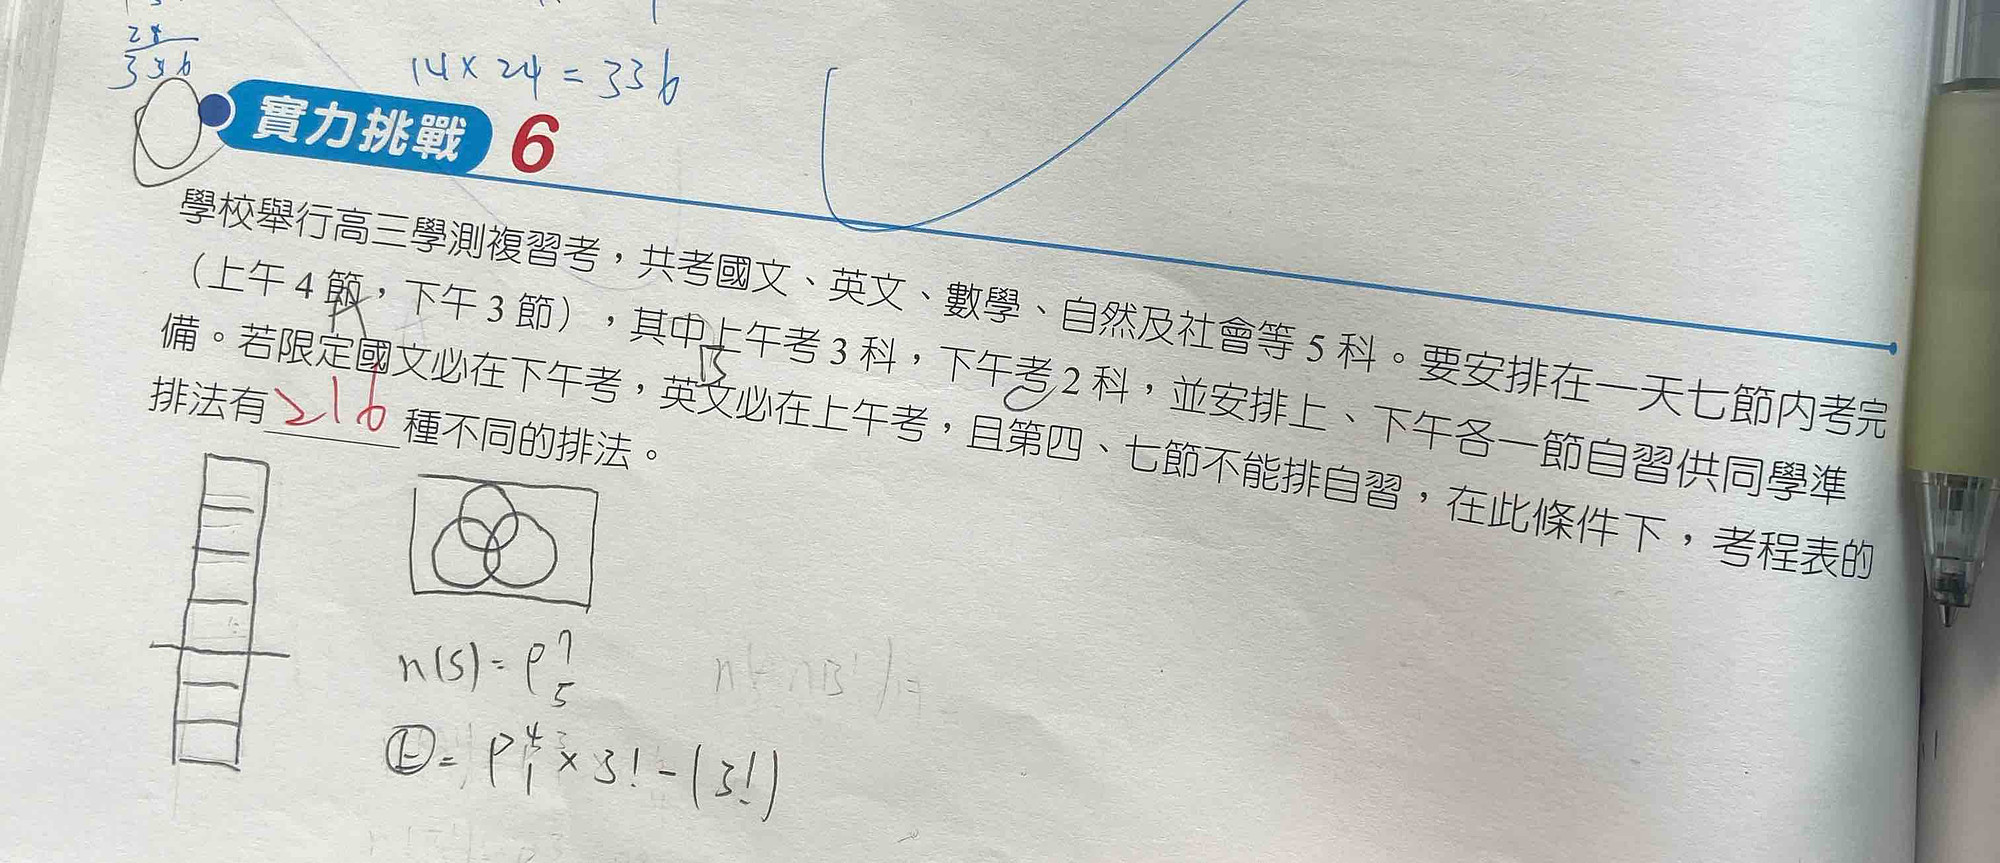 24
336
14 × 24 = 336
實力挑戰 6
學校舉行高三學測複習考，共考國文、英文、數學、自然及社會等 5 科。要安排在一天七節內考完
（上午 4 節，下午 3 節），其中上午考 3 科，下午考 2 科，並安排上、下午各一節自習供同學準
備。若限定國文必在下午考，英文必在上午考，且第四、七節不能排自習，在此條件下，考程表的
A B
排法有 216 種不同的排法。
n(S) = P⁷₅
上 = P⁴₁ × 3! - (3!)